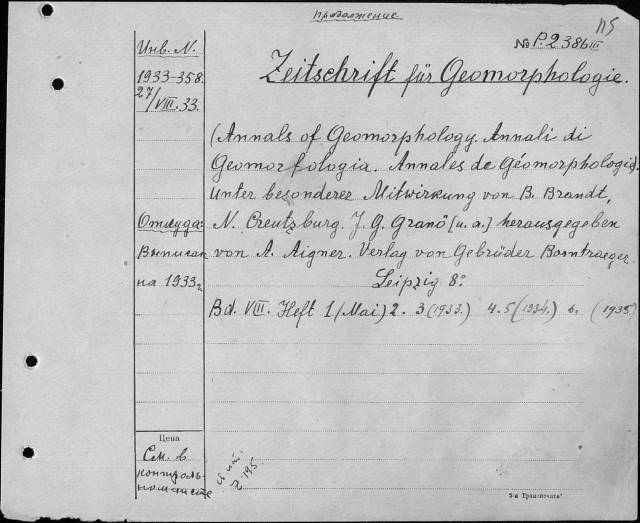 продолжение
115
№ P.2386 III
Инв. N.
1933-358.
27/VIII.33.
Zeitschrift für Geomorphologie.
(Annals of Geomorphology. Annali di
Geomorfologia. Annales de Géomorphologie).
Unter besonderer Mitwirkung von B. Brandt,
N. Creutzburg. J. G. Granö [u. a.] herausgegeben
von A. Aigner. Verlag von Gebrüder Borntraeger.
Leipzig 8°
Bd. VIII. Heft 1 (Mai) 2. 3 (1933.) 4.5 (1934.) 6. (1935)
Откуда:
Выписан
на 1933 г.
Цена
См. в
контроль-
ном листе
2-я Транспечать